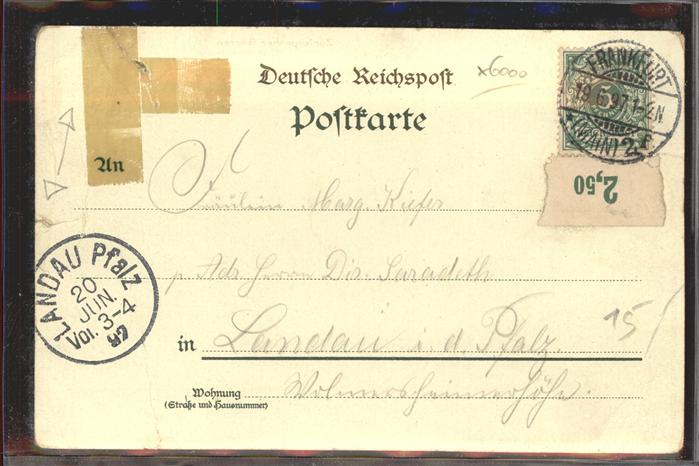 Deutsche Reichspost
×6000
Postkarte
FRANKFURT
19.6.97.1-2N
(MAIN) 2.F
5
2,50
An
Fräulein Marg Kiefer
p Adr Herrn Dir. Saradeth
in Landau i. d. Pfalz
15
Wohnung
(Straße und Hausnummer)
Wolmersheimerhöhe.
LANDAU Pfalz
20
JUN.
Vor. 3-4
97